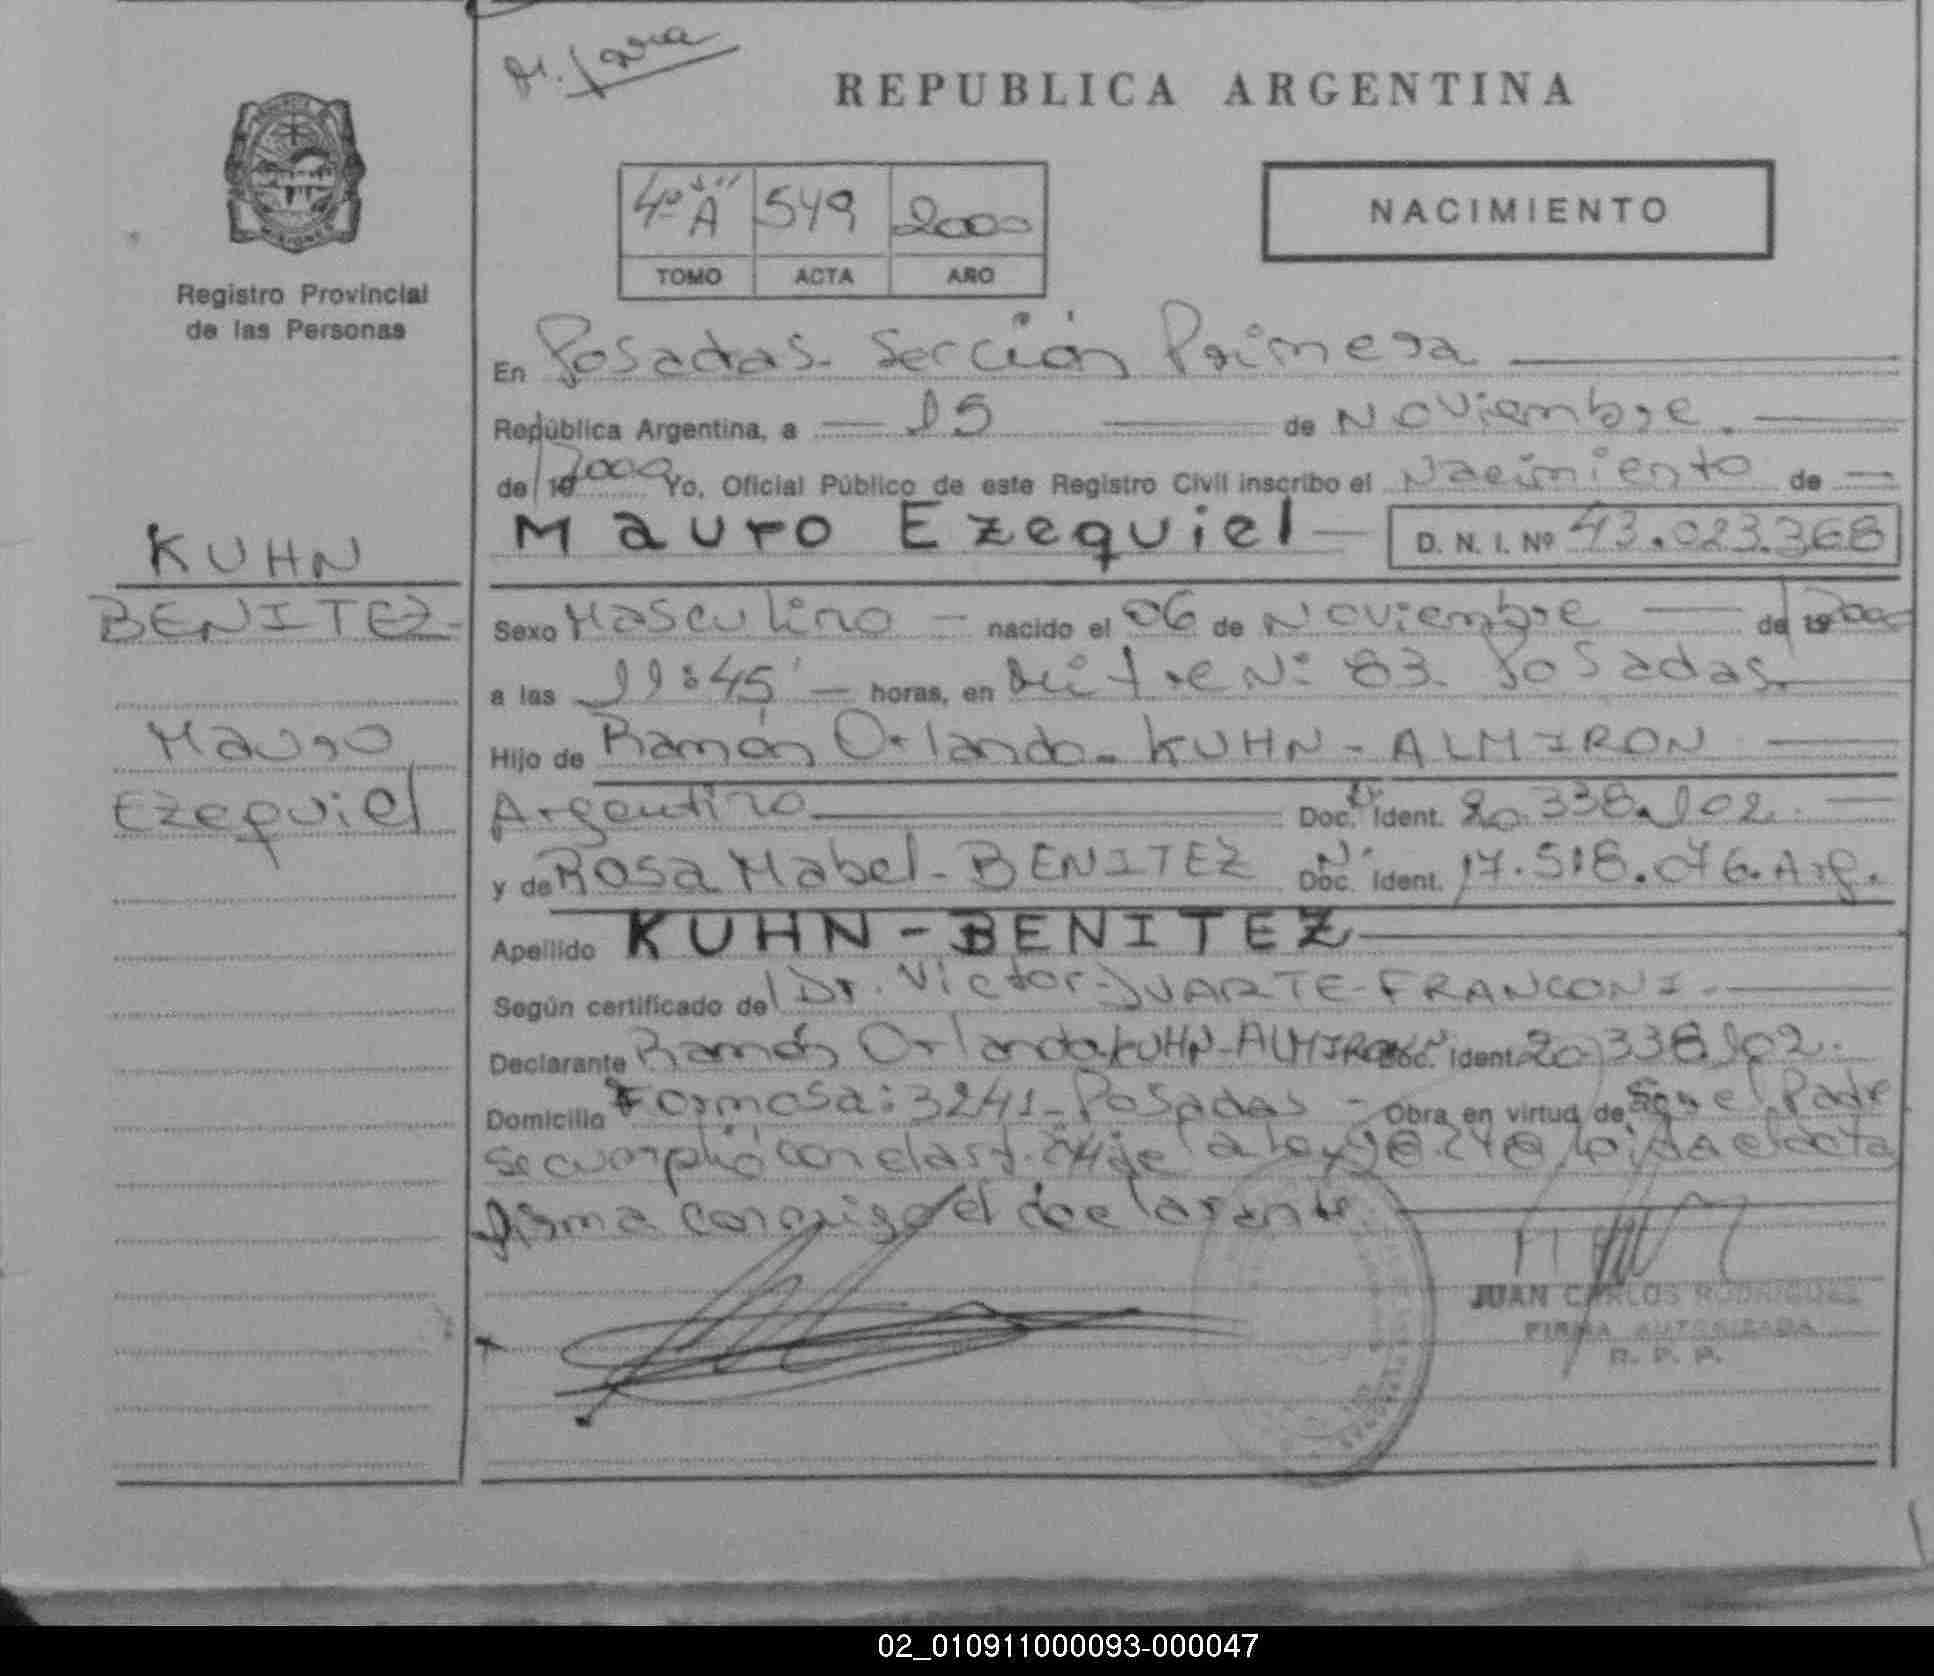 REPUBLICA ARGENTINA
4º "A" 549 2000
TOMO ACTA AÑO
NACIMIENTO
MISIONES
Registro Provincial
de las Personas
KUHN
BENITEZ-
Mauro
Ezequiel
En Posadas- Sección Primera
República Argentina, a 15 de Noviembre.
de 19 2000 Yo, Oficial Público de este Registro Civil inscribo el Nacimiento de
Mauro Ezequiel D. N. I. Nº 43.023.368
Sexo Masculino - nacido el 06 de Noviembre de 19 2000
a las 11:45' horas, en Mitre Nº 83. Posadas.
Hijo de Ramón Orlando- KUHN - ALMIRON
Argentino Doc. Ident. 20.338.102.
y de Rosa Mabel- BENITEZ Doc. Ident. 17.518.076. Arg.
Apellido KUHN-BENITEZ
Según certificado de Dr. Victor- DUARTE-FRANCONI.
Declarante Ramón Orlando-KUHN-ALMIRON Doc. Ident. 20.338.102.
Domicilio Formosa: 3241- Posadas - Obra en virtud de Ser el Padre
se cumplió con el art. de la ley leída el acta
firma conmigo el declarante.
JUAN CARLOS RODRIGUEZ
FIRMA AUTORIZADA
R. P. P.
02_010911000093-000047